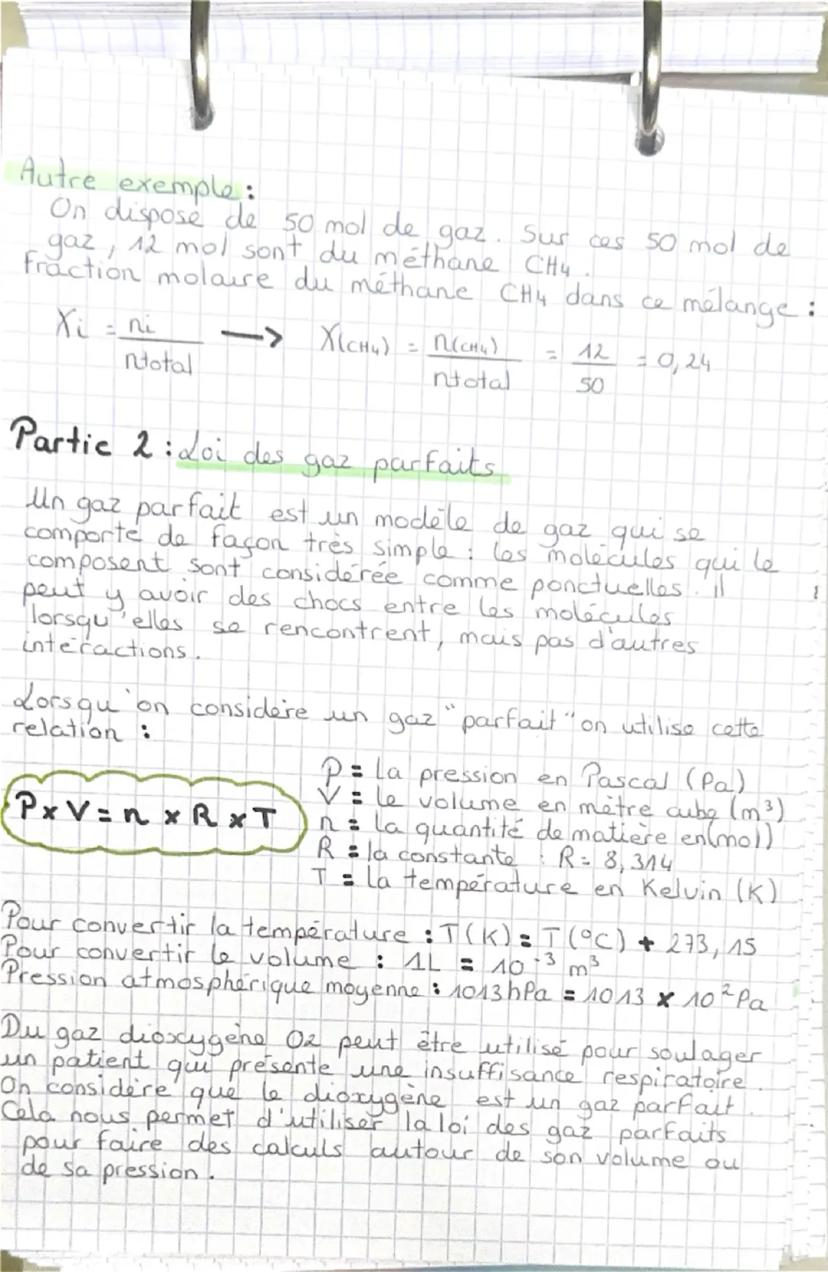 Autre exemple :
On dispose de 50 mol de gaz. Sur ces 50 mol de
gaz, 12 mol sont du méthane CH4.
Fraction molaire du méthane CH4 dans ce mélange :
Xi = ni / ntotal → X(CH4) = n(CH4) / ntotal = 12 / 50 = 0,24
Partie 2 : Loi des gaz parfaits
Un gaz parfait est un modèle de gaz qui se
comporte de façon très simple : les molécules qui le
composent sont considérée comme ponctuelles. il
peut y avoir des chocs entre les molécules
lorsqu'elles se rencontrent, mais pas d'autres
intéractions.
Lorsqu'on considère un gaz "parfait" on utilise cette
relation :
P x V = n x R x T
P = la pression en Pascal (Pa)
V = le volume en mètre cube (m³)
n = la quantité de matière en(mol)
R = la constante : R = 8,314
T = la température en Kelvin (K)
Pour convertir la température : T(K) = T(°C) + 273,15
Pour convertir le volume : 1L = 10⁻³ m³
Pression atmosphérique moyenne : 1013hPa = 1013 x 10² Pa
Du gaz dioxygène O2 peut être utilisé pour soulager
un patient qui présente une insuffisance respiratoire.
On considère que le dioxygène est un gaz parfait.
Cela nous permet d'utiliser la loi des gaz parfaits
pour faire des calculs autour de son volume ou
de sa pression.